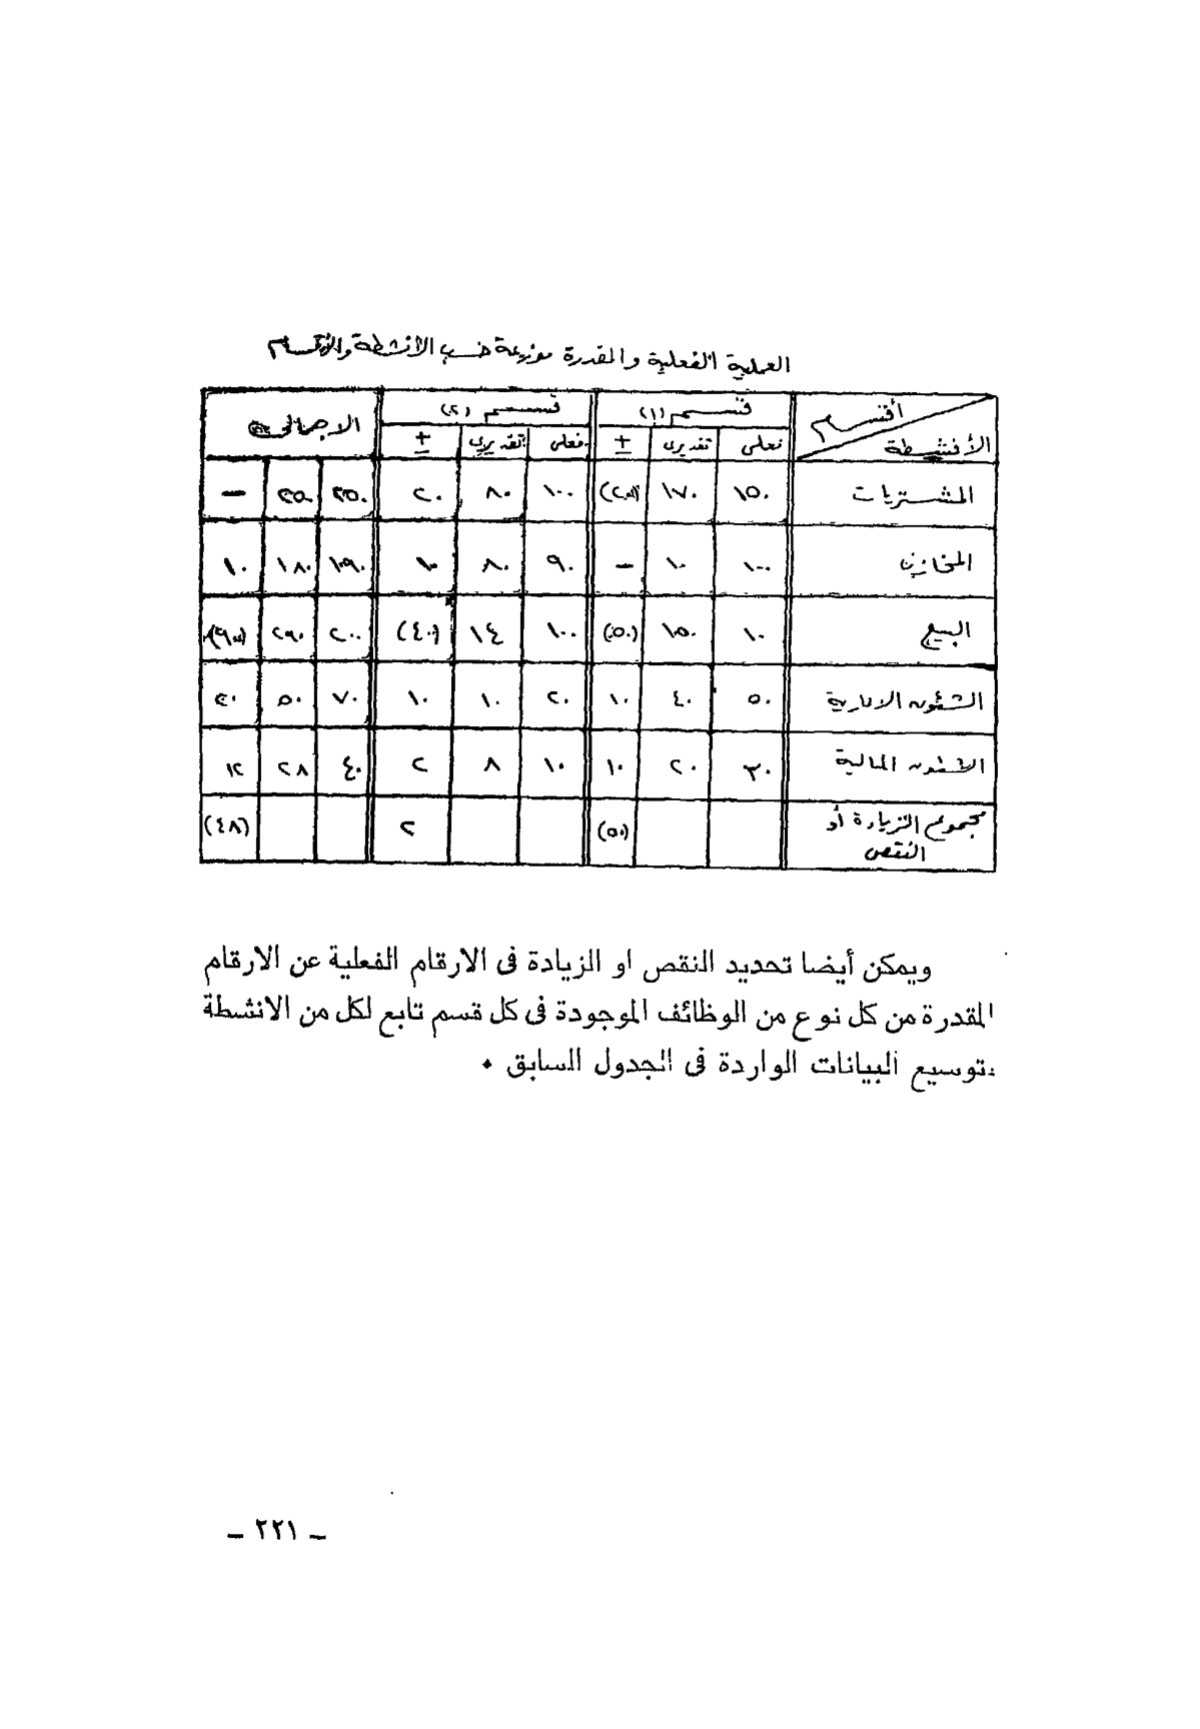 العملية الفعلية والمقدرة موزعة حسب الأنشطة والأقسام
أقسام	قسم (١)	قسم (٢)	الاجمالى
الأنشطة	فعلى	تقديرى	±	فعلى	تقديرى	±
المشتريات	١٥٠	١٧٠	(٢٠)	١٠٠	٨٠	٢٠	٢٥٠	٢٥٠	—
المخازن	١٠٠	١٠	—	٩٠	٨٠	١٠	١٩٠	١٨٠	١٠
البيع	١٠	١٥٠	(٥٠)	١٠٠	١٤	(٤٠)	٢٠٠	٢٩٠	(٩٠)
الشئون الادارية	٥٠	٤٠	١٠	٢٠	١٠	١٠	٧٠	٥٠	٢٠
الشئون المالية	٣٠	٢٠	١٠	١٠	٨	٢	٤٠	٢٨	١٢
مجموع الزيادة أو	(٥٠)	٢	(٤٨)
النقص
ويمكن أيضا تحديد النقص او الزيادة فى الارقام الفعلية عن الارقام
المقدرة من كل نوع من الوظائف الموجودة فى كل قسم تابع لكل من الانشطة
بتوسيع البيانات الواردة فى الجدول السابق ٠
– ٢٢١ –